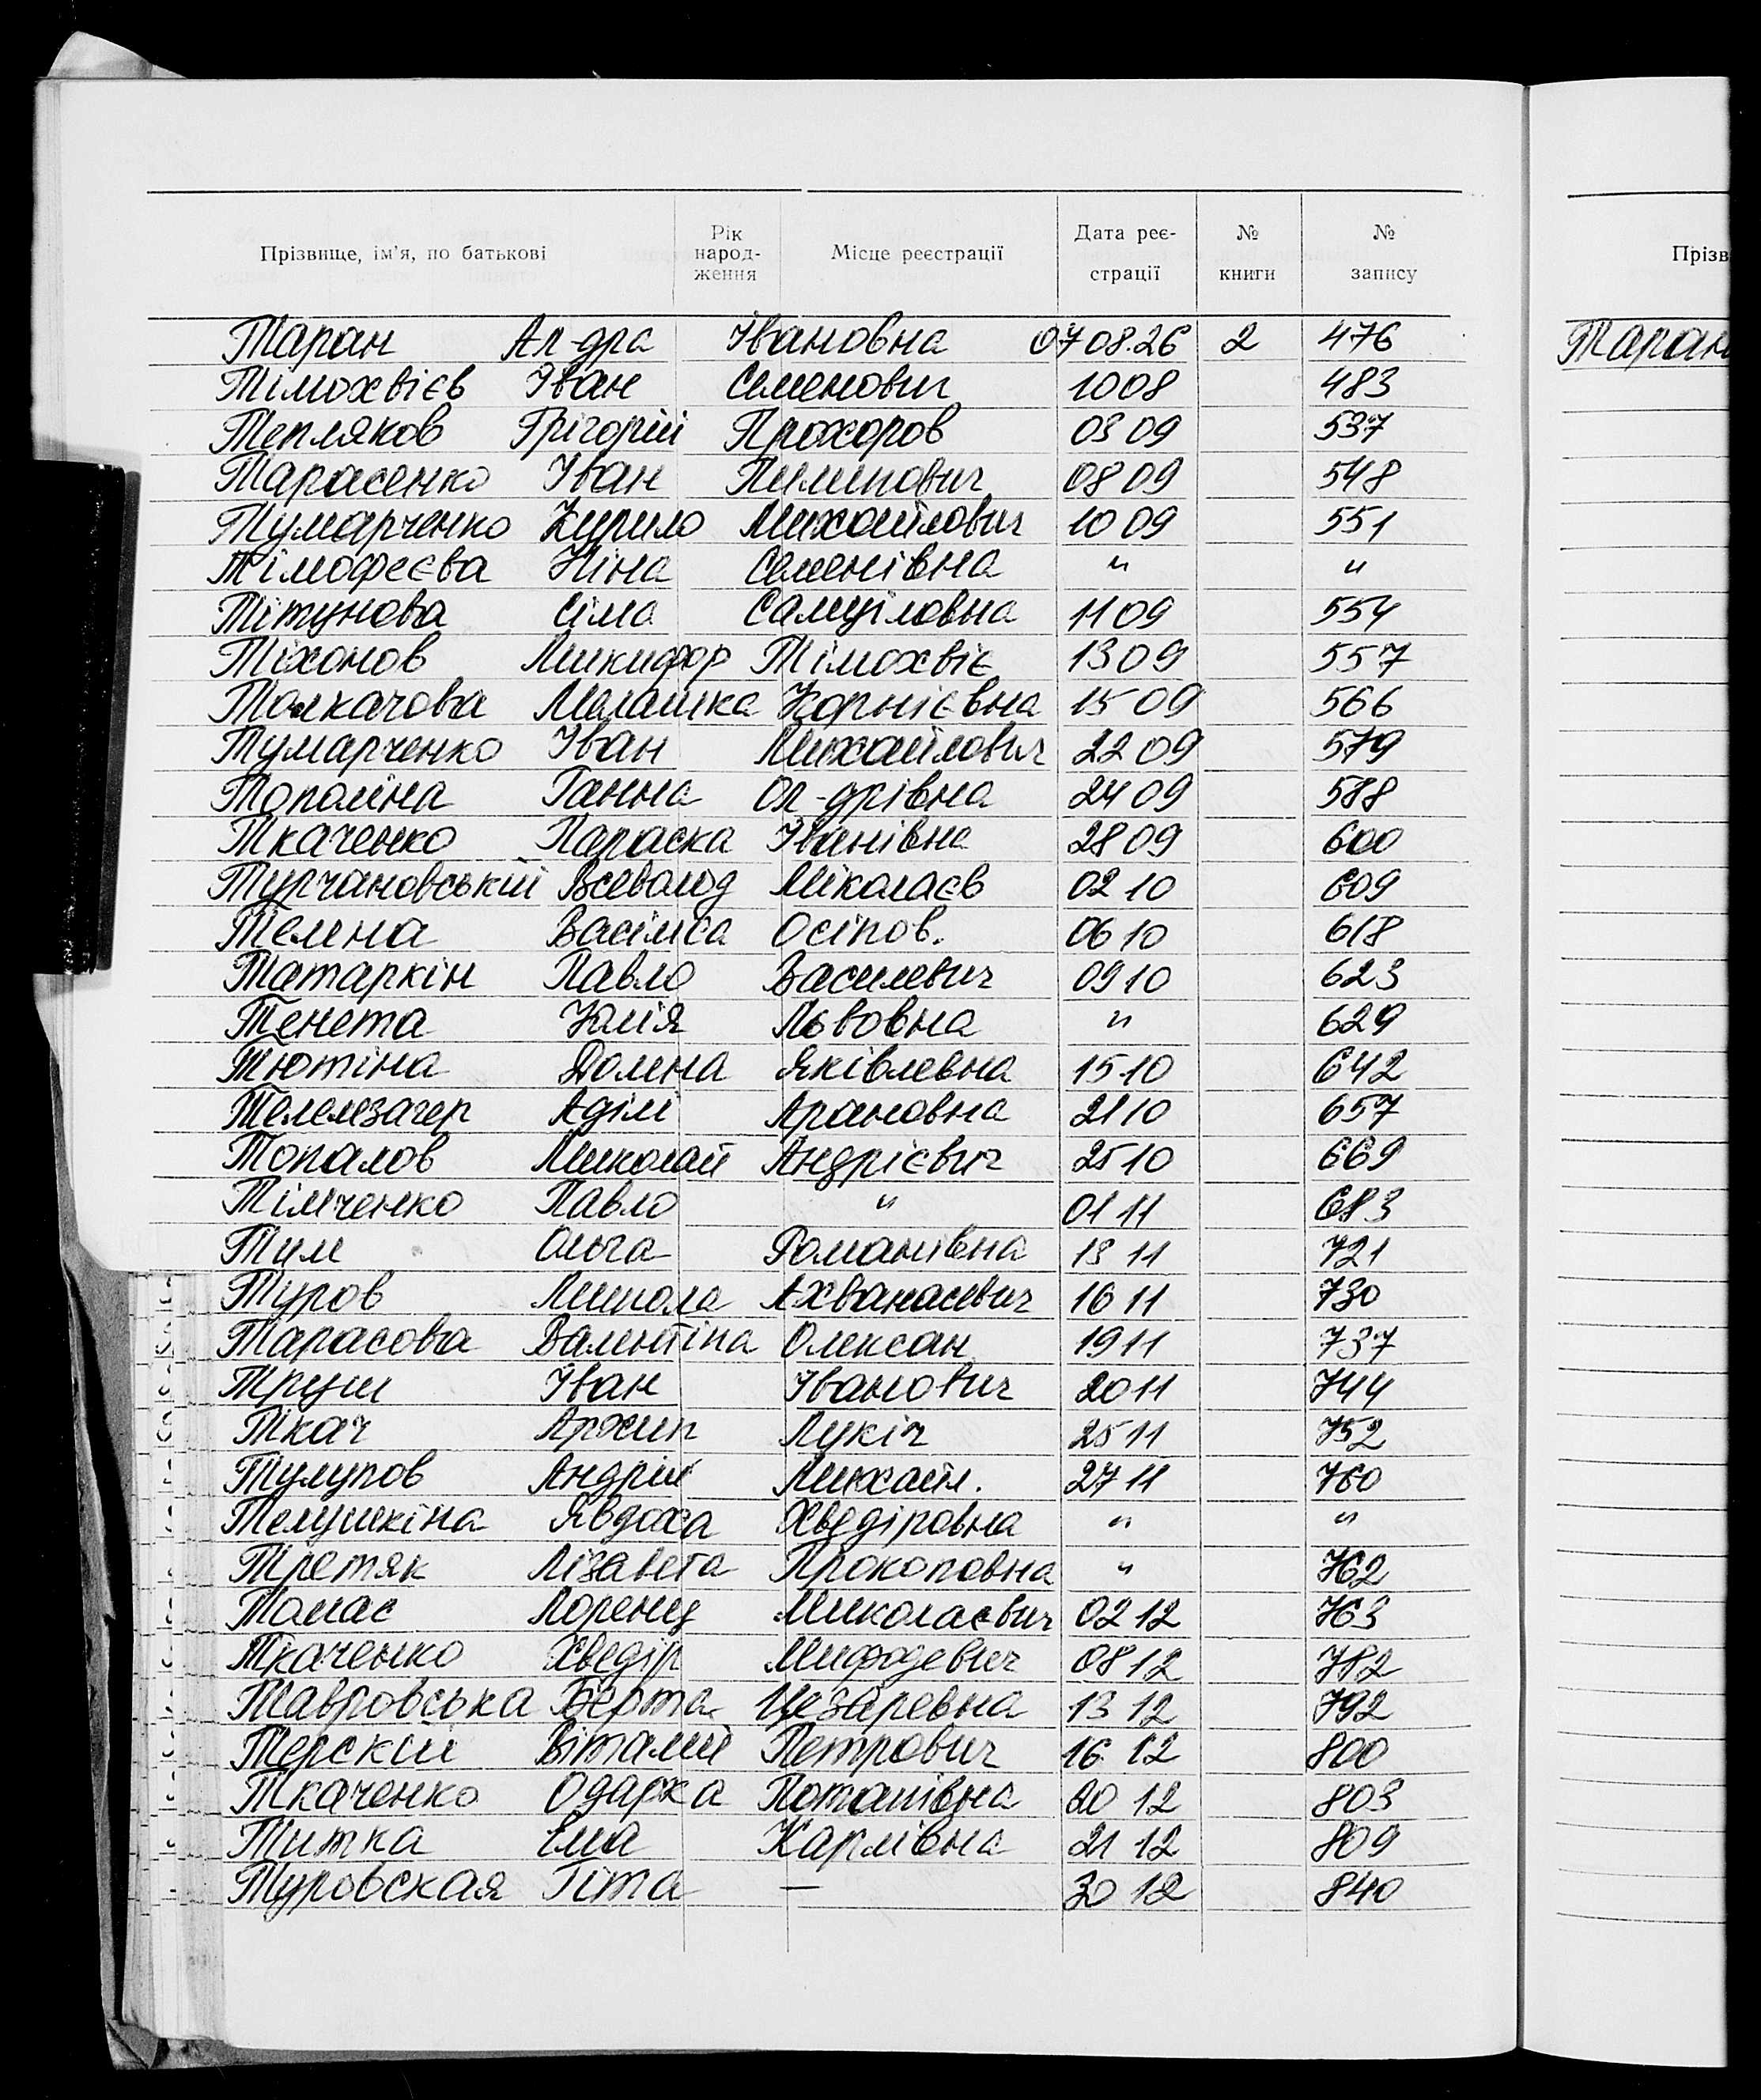 Прізвище, ім'я, по батькові Рік народ-ження Місце реєстрації Дата реє-страції № книги № запису
Прізв
Таран Ал-дра Івановна 07 08.26 2 476
Таран
Тімохвієв Іван Семенович 10 08 483
Тепляков Грігорій Прохоров 03 09 537
Тарасенко Іван Пилипович 08 09 548
Тумарченко Кирило Михайлович 10 09 551
Тімофеєва Ніна Семенівна " "
Тітунова Сіма Самуіловна 11 09 554
Тіхонов Микифор Тімохвіє 13 09 557
Толкачова Малашка Корнієвна 15 09 566
Тумарченко Іван Михайлович 22 09 579
Тополіна Ганна Ол-дрівна 24 09 588
Ткаченко Параска Іванівна 28 09 600
Турчановській Всеволод Міколаєв 02 10 609
Телена Васіліса Осіпов. 06 10 618
Татаркін Павло Василевич 09 10 623
Тенета Юлія Львовна " 629
Тютіна Долена Яківлевна 15 10 642
Телелезагер Аділі Ароновна 21 10 657
Топалов Миколай Андрієвич 25 10 669
Тімченко Павло " 01 11 683
Тим Ольга Романівна 18 11 721
Туров Микола Ахванасевич 16 11 730
Тарасова Валентіна Олексан 19 11 737
Труш Іван Іванович 20 11 744
Ткач Архип Лукіч 25 11 752
Тулупов Андрій Михайл. 27 11 760
Телушкіна Явдоха Хведіровна " "
Третяк Лізавета Прокоповна " 762
Томас Лоренц Миколаєвич 02 12 763
Ткаченко Хведір Мифодевич 08 12 782
Тавровська Берта Цезаревна 13 12 792
Терскій Віталий Петрович 16 12 800
Ткаченко Одарка Потапівна 20 12 803
Титка Ема Карлівна 21 12 809
Туровская Гіта — 30 12 840